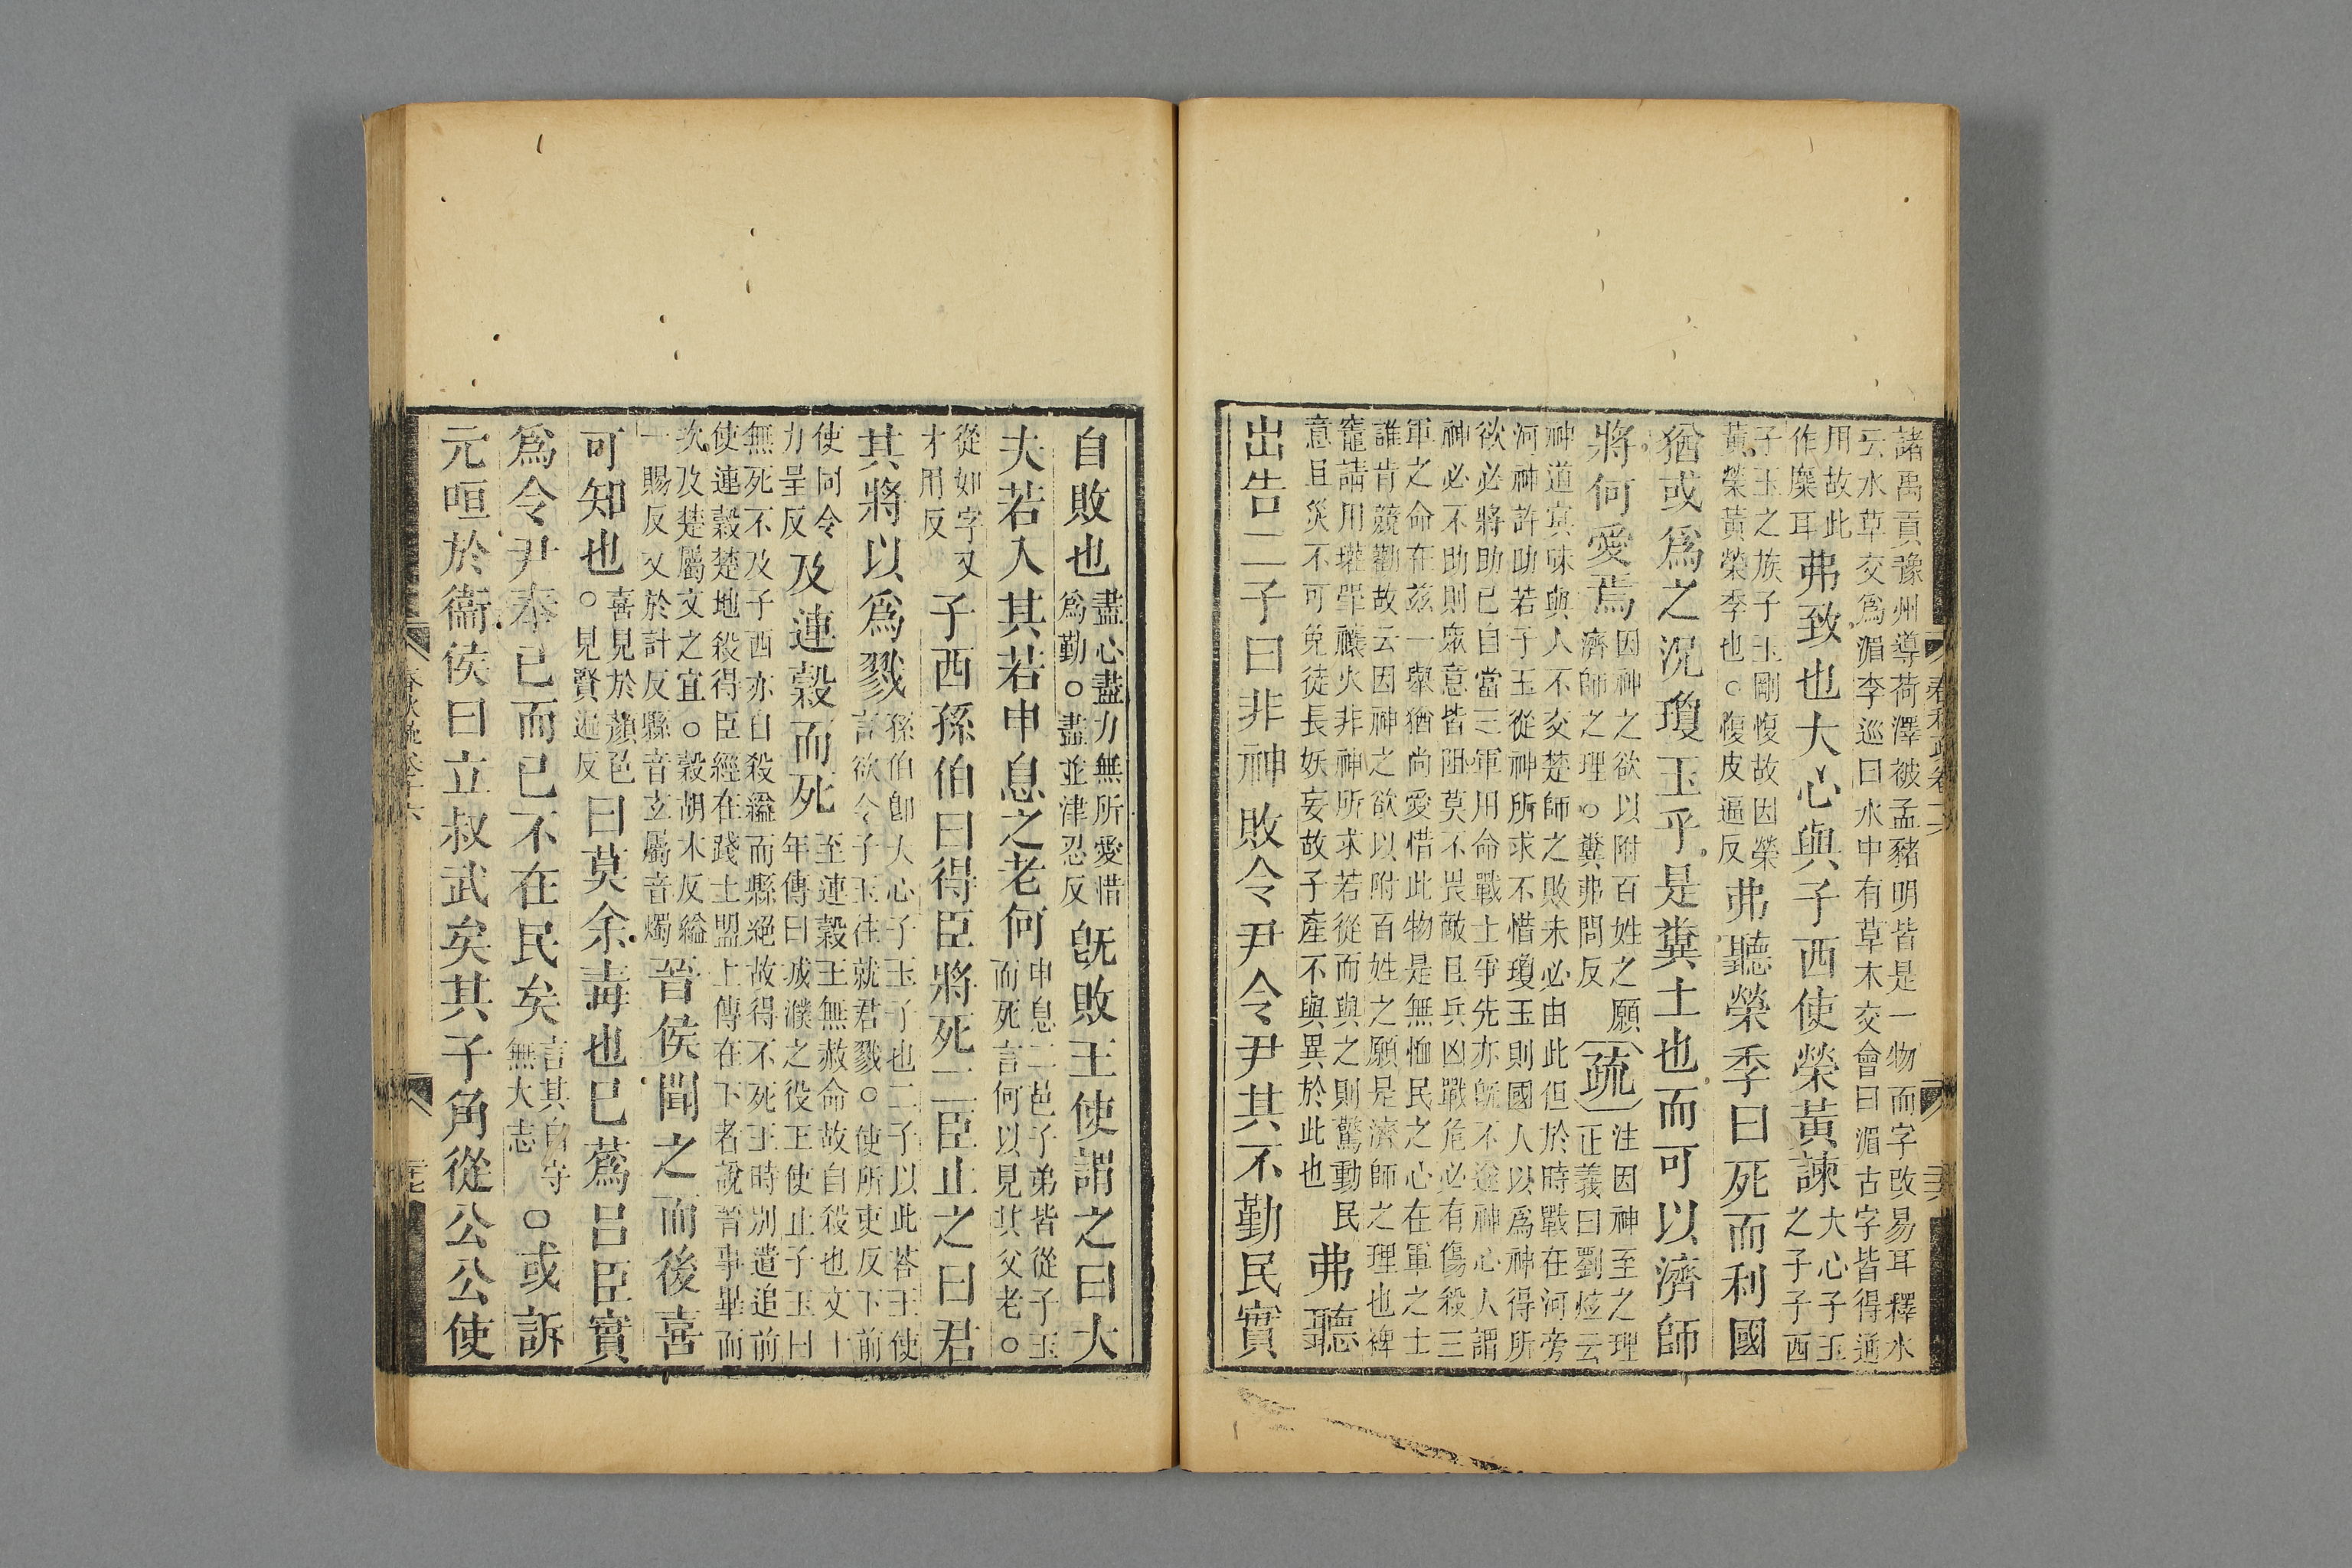 諸禹貢豫州導荷澤被孟豬明皆是一物而字改易耳釋水
云水草交爲湄李巡曰水中有草木交會曰湄古字皆得通
用故此
作麋耳
弗致也大心與子西使榮黃諫
大心子玉
之子子西
子玉之族子玉剛愎故因榮
黃榮黃榮季也○愎皮逼反
弗聽榮季曰死而利國
猶或爲之況瓊玉乎是糞土也而可以濟師
將何愛焉
因神之欲以附百姓之願
濟師之理○糞弗問反
疏
注因神至之理
正義曰劉炫云
神道冥昧與人不交楚師之敗未必由此但於時戰在河旁
河神許助若子玉從神所求不惜瓊玉則國人以爲神得所
欲必將助已自當三軍用命戰士爭先亦旣不從神心人謂
神必不助則衆意皆阻莫不畏敵且兵凶戰危必有傷殺三
軍之命在茲一舉猶尚愛惜此物是無恤民之心在軍之士
誰肯競勸故云因神之欲以附百姓之願是濟師之理也裨
竈請用瓘斝禳火非神所求若從而與之則驚動民
意且災不可免徒長妖妄故子產不與異於此也
弗聽
出告二子曰非神敗令尹令尹其不勤民實
春秋疏卷十六
自敗也
盡心盡力無所愛惜
爲勤○盡並津忍反
旣敗王使謂之曰大
夫若入其若申息之老何
申息二邑子弟皆從子玉
而死言何以見其父老○
從如字又
才用反
子西孫伯曰得臣將死二臣止之曰君
其將以爲戮
孫伯卽大心子玉子也二子以此荅王使
言欲令子玉往就君戮○使所吏反下前
使同令
力呈反
及連穀而死
至連穀王無赦命故自殺也文十
年傳曰城濮之役王使止子玉曰
無死不及子西亦自殺縊而縣絕故得不死王時別遣追前
使連穀楚地殺得臣經在踐土盟上傳在下者說晉事畢而
次及楚屬文之宜○穀胡木反縊
一賜反又於計反縣音玄屬音燭
晉侯聞之而後喜
可知也
喜見於顏色
○見賢遍反
曰莫余毒也已蔿呂臣實
爲令尹奉已而已不在民矣
言其自守
無大志
○或訴
元咺於衞侯曰立叔武矣其子角從公公使
春秋疏卷十六